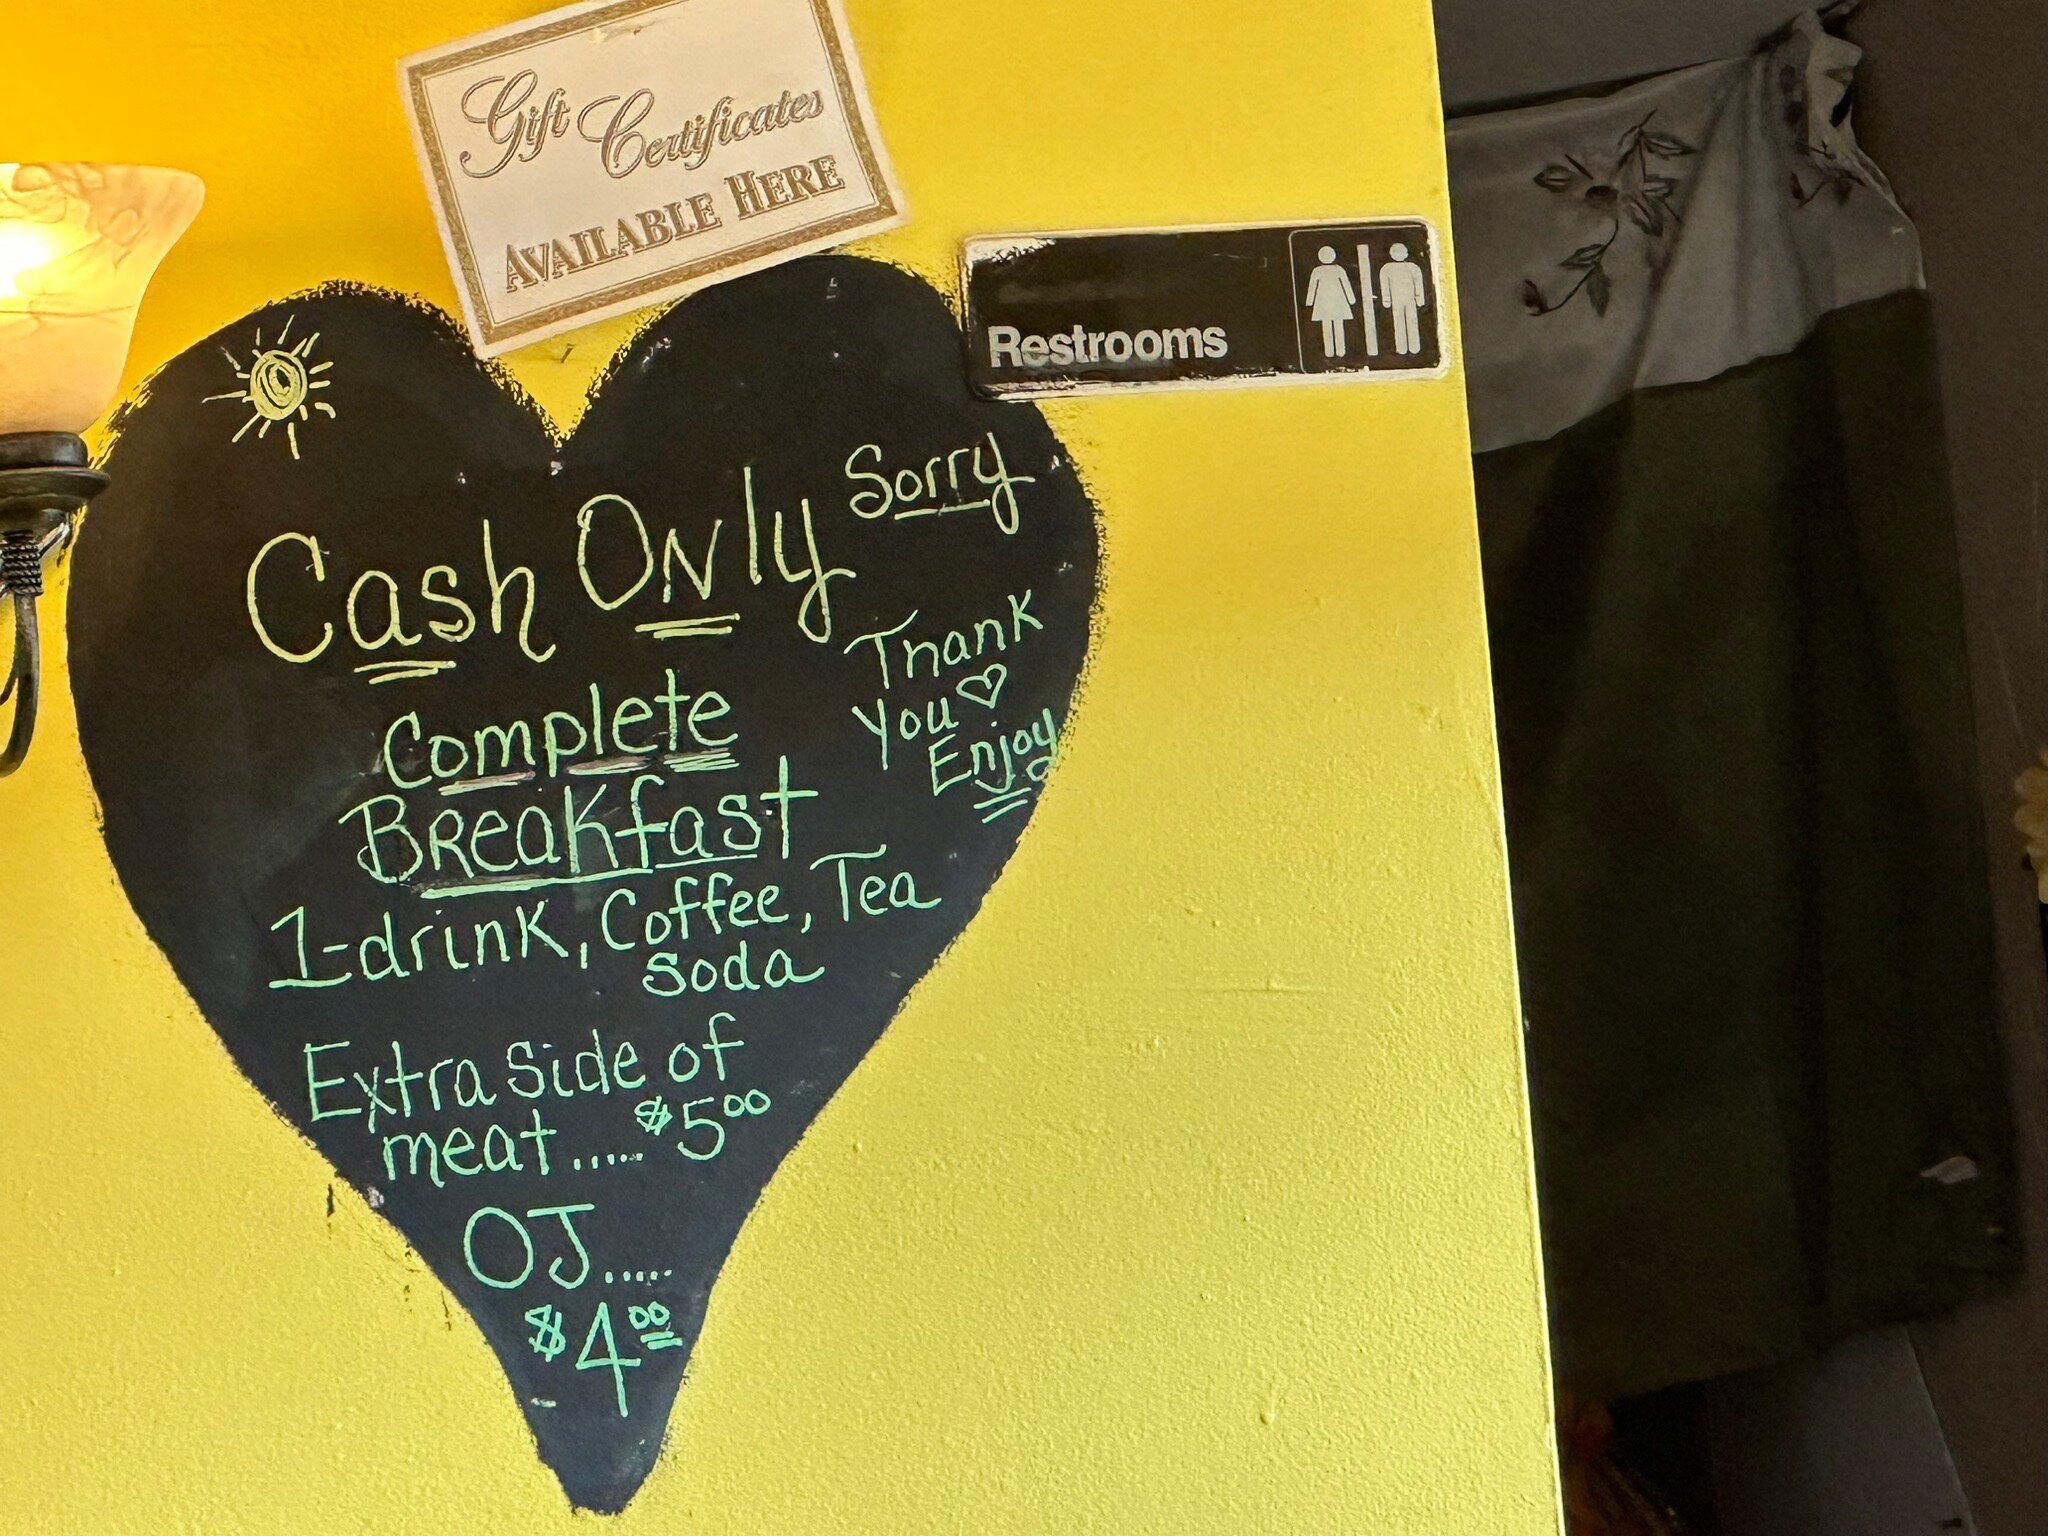 Gift Certificates
AVAILABLE HERE
Restrooms
Cash ONly Sorry
Thank
you♡
Enjoy
Complete
BReakfast
1-drink, Coffee, Tea
soda
Extra side of
meat..... $5.00
OJ.....
$4.00